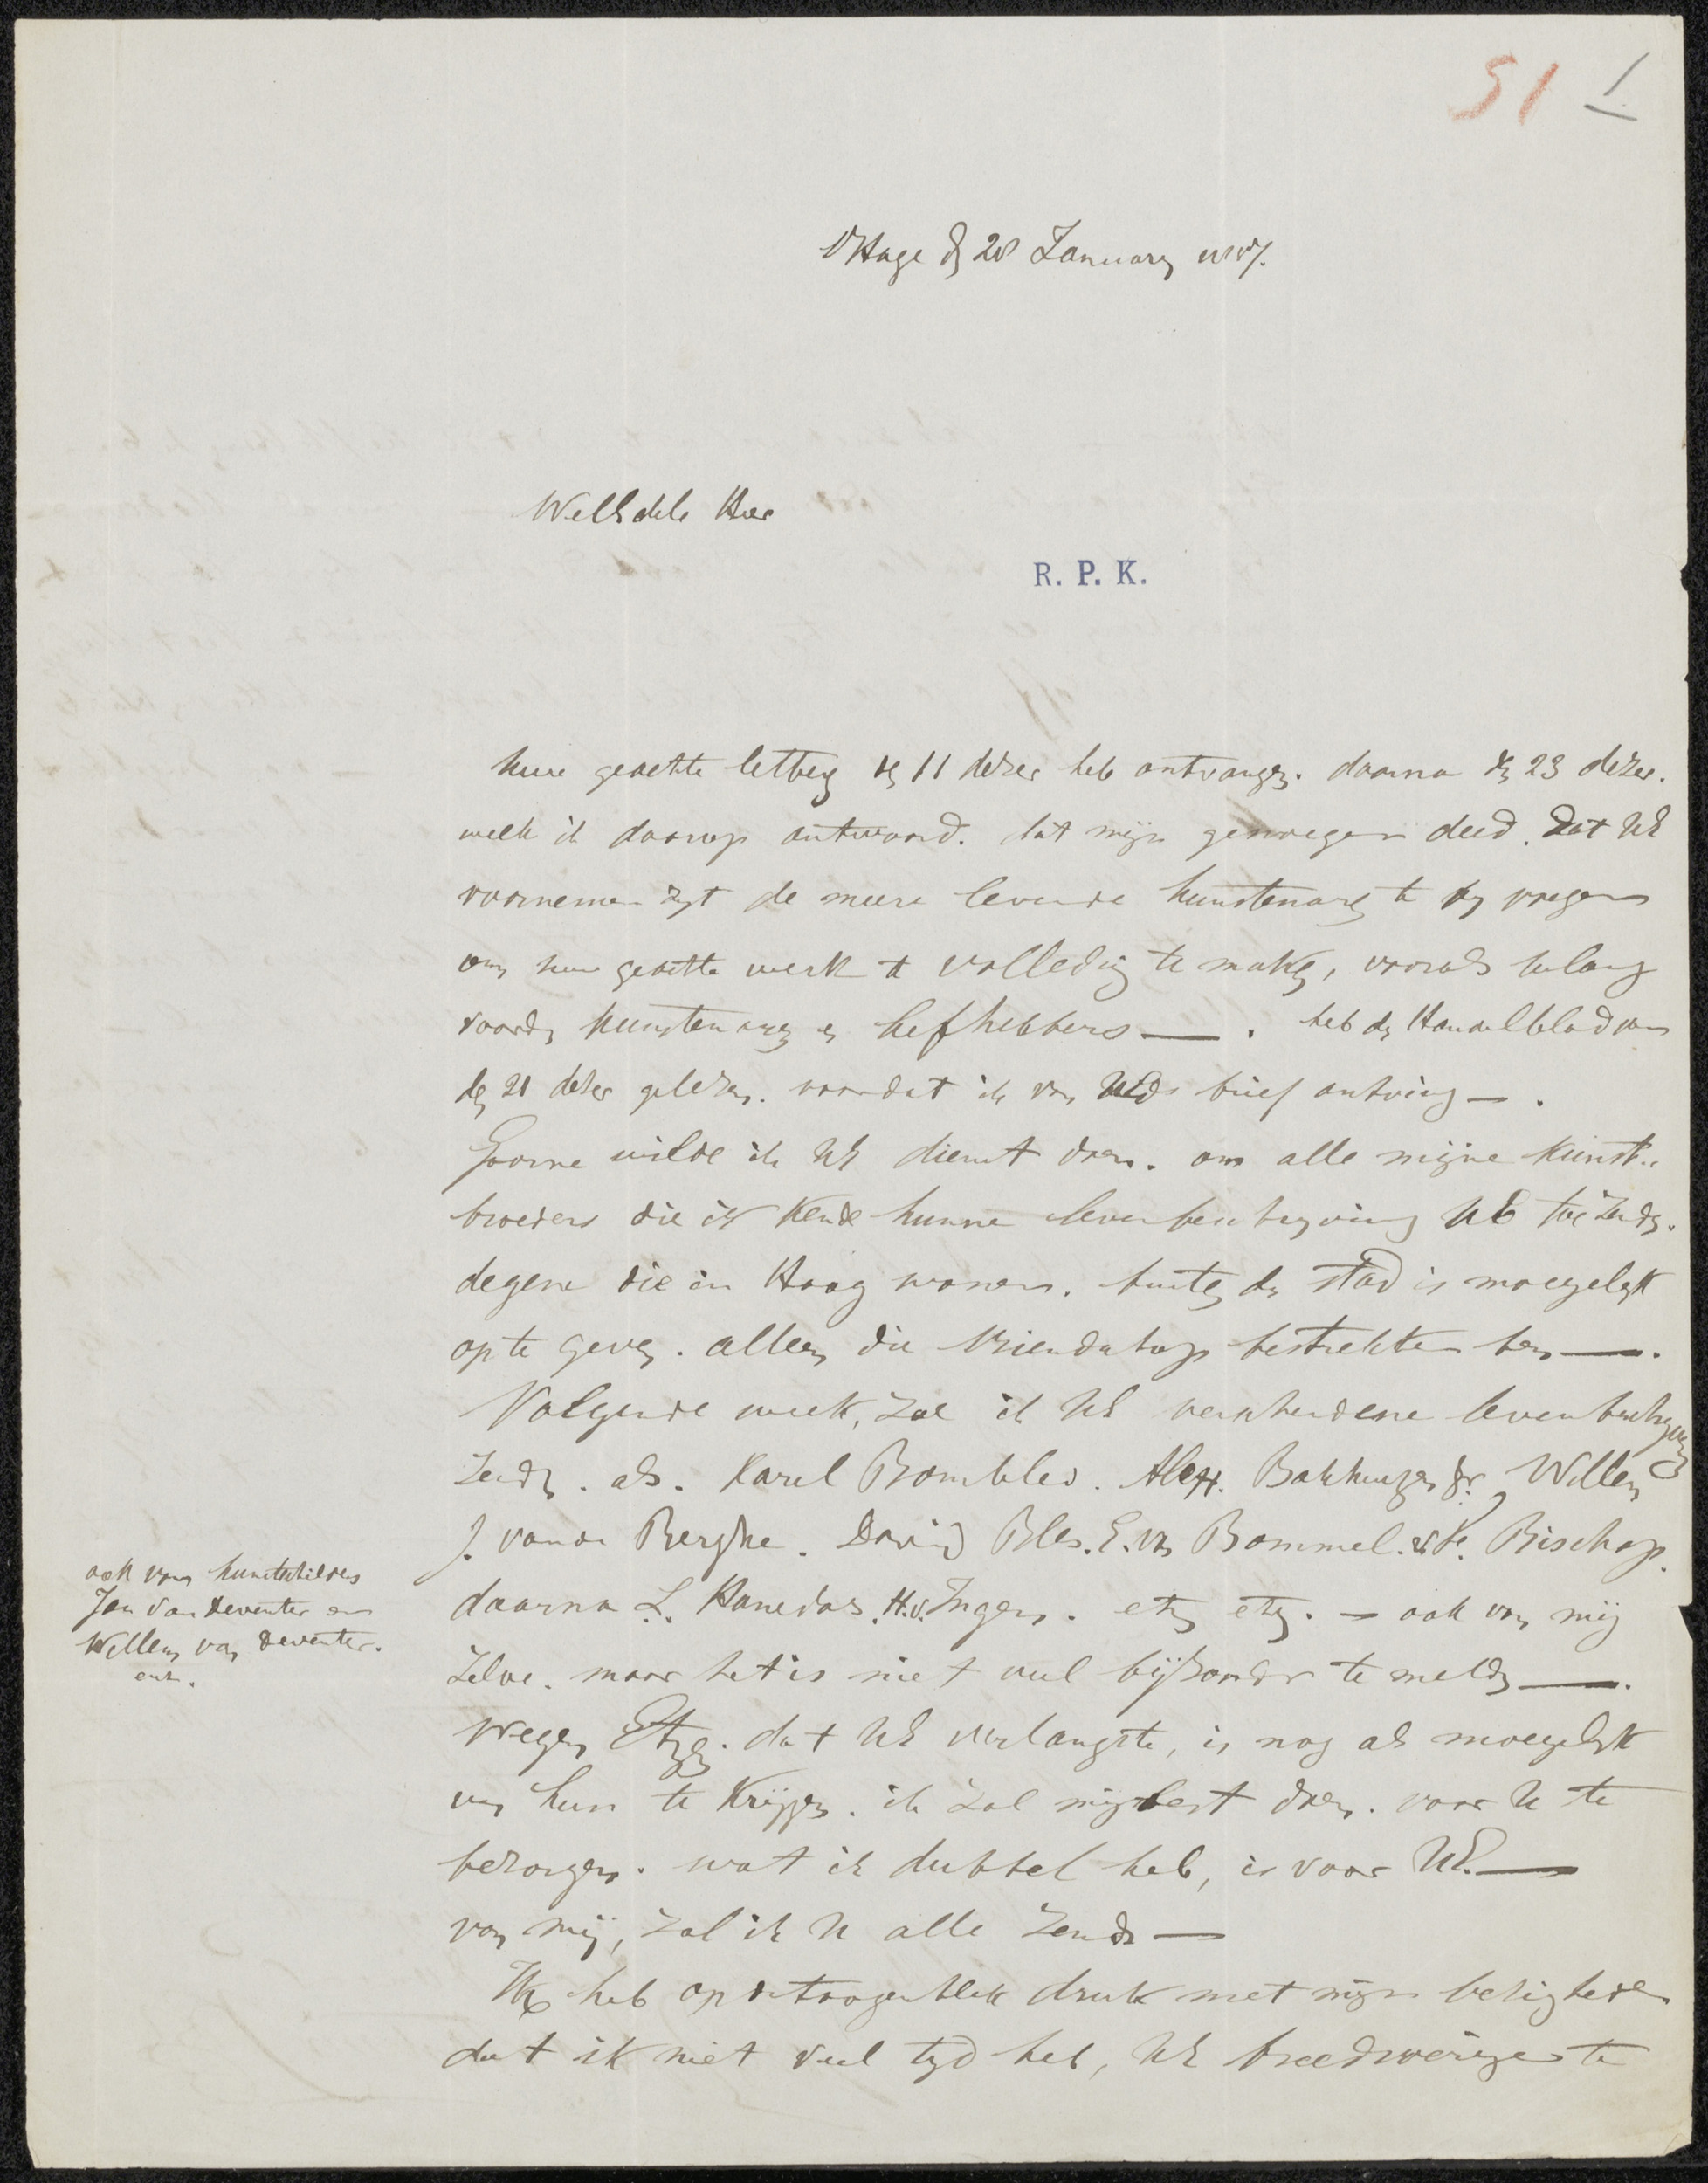 51 1
's Hage den 28 January
WelEdele Heer
R. P. K.
geachte letteren den 11 dezer heb ontvangen. daarna den 23 dezer.
welk ik daarop antwoord. dat mijn genoegen deed. dat UE
voornemen zyt de meere levende kunstenaren te vragen
om geachte werk te volledig te maken, vooral belang
voorden kunstenaren en liefhebbers — . heb den Handelblad van
den 21 dezer gelezen. voordat ik van UEds brief ontving — .
Gaarne wilde ik UE dienst doen. om alle mijne kunst..
broeders die ik kende hunne levenbeschryving UE toe zenden.
degene die in Haag wonen. buiten de stad is moegelyk
op te geven. alleen die vriendschap betrekken ben —.
Volgende week, zal ik UE verscheidene levenbeschryving
zenden. als. Karel Bombled. Alex. Bakhuyzen Jr. Willem
J. vande Berghe. David Bles. E. van Bommel. Bischop.
ook van kunstschilders
Jan van Deventer en
Willem van Deventer.
enz.
daarna L. Hanedoes. H.v. Ingen. etz etz. — ook van mij
zelve. maar het is niet veel bijzonder te melden —.
wegen Etzen. dat UE verlangste, is nog al moegelyk
van hun te krijgen. ik zal mijn best doen. voor U te
bezorgen. wat ik dubbel heb, is voor UE. —
van mij, zal ik U alle zenden —
Ik heb op dit oogenblik druk met mijn bezigheden
dat ik niet veel tyd heb, UE breedvoeriger te